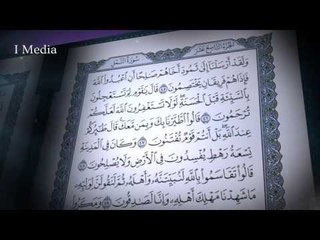 I Media
سُورَةُ النَّمْلِ
الجُزْءُ التَّاسِعَ عَشَرَ
وَلَقَدْ أَرْسَلْنَآ إِلَىٰ ثَمُودَ أَخَاهُمْ صَٰلِحًا أَنِ ٱعْبُدُوا۟ ٱللَّهَ
فَإِذَا هُمْ فَرِيقَانِ يَخْتَصِمُونَ ٤٥ قَالَ يَٰقَوْمِ لِمَ تَسْتَعْجِلُونَ
بِٱلسَّيِّئَةِ قَبْلَ ٱلْحَسَنَةِ لَوْلَا تَسْتَغْفِرُونَ ٱللَّهَ لَعَلَّكُمْ
تُرْحَمُونَ ٤٦ قَالُوا۟ ٱطَّيَّرْنَا بِكَ وَبِمَن مَّعَكَ قَالَ طَٰٓئِرُكُمْ
عِندَ ٱللَّهِ بَلْ أَنتُمْ قَوْمٌ تُفْتَنُونَ ٤٧ وَكَانَ فِى ٱلْمَدِينَةِ
تِسْعَةُ رَهْطٍ يُفْسِدُونَ فِى ٱلْأَرْضِ وَلَا يُصْلِحُونَ ٤٨
قَالُوا۟ تَقَاسَمُوا۟ بِٱللَّهِ لَنُبَيِّتَنَّهُۥ وَأَهْلَهُۥ ثُمَّ لَنَقُولَنَّ لِوَلِيِّهِۦ
مَا شَهِدْنَا مَهْلِكَ أَهْلِهِۦ وَإِنَّا لَصَٰدِقُونَ ٤٩ وَمَكَرُوا۟